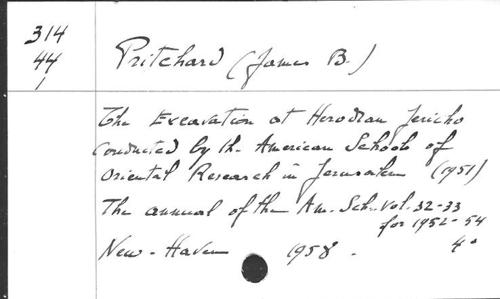 314
44
1
Pritchard (James B.)
The Excavation at Herodian Jericho
conducted by the American Schools of
Oriental Research in Jerusalem (1951)
The annual of the Am. Sch. Vol. 32-33
for 1952-54
New-Haven 1958. 4°